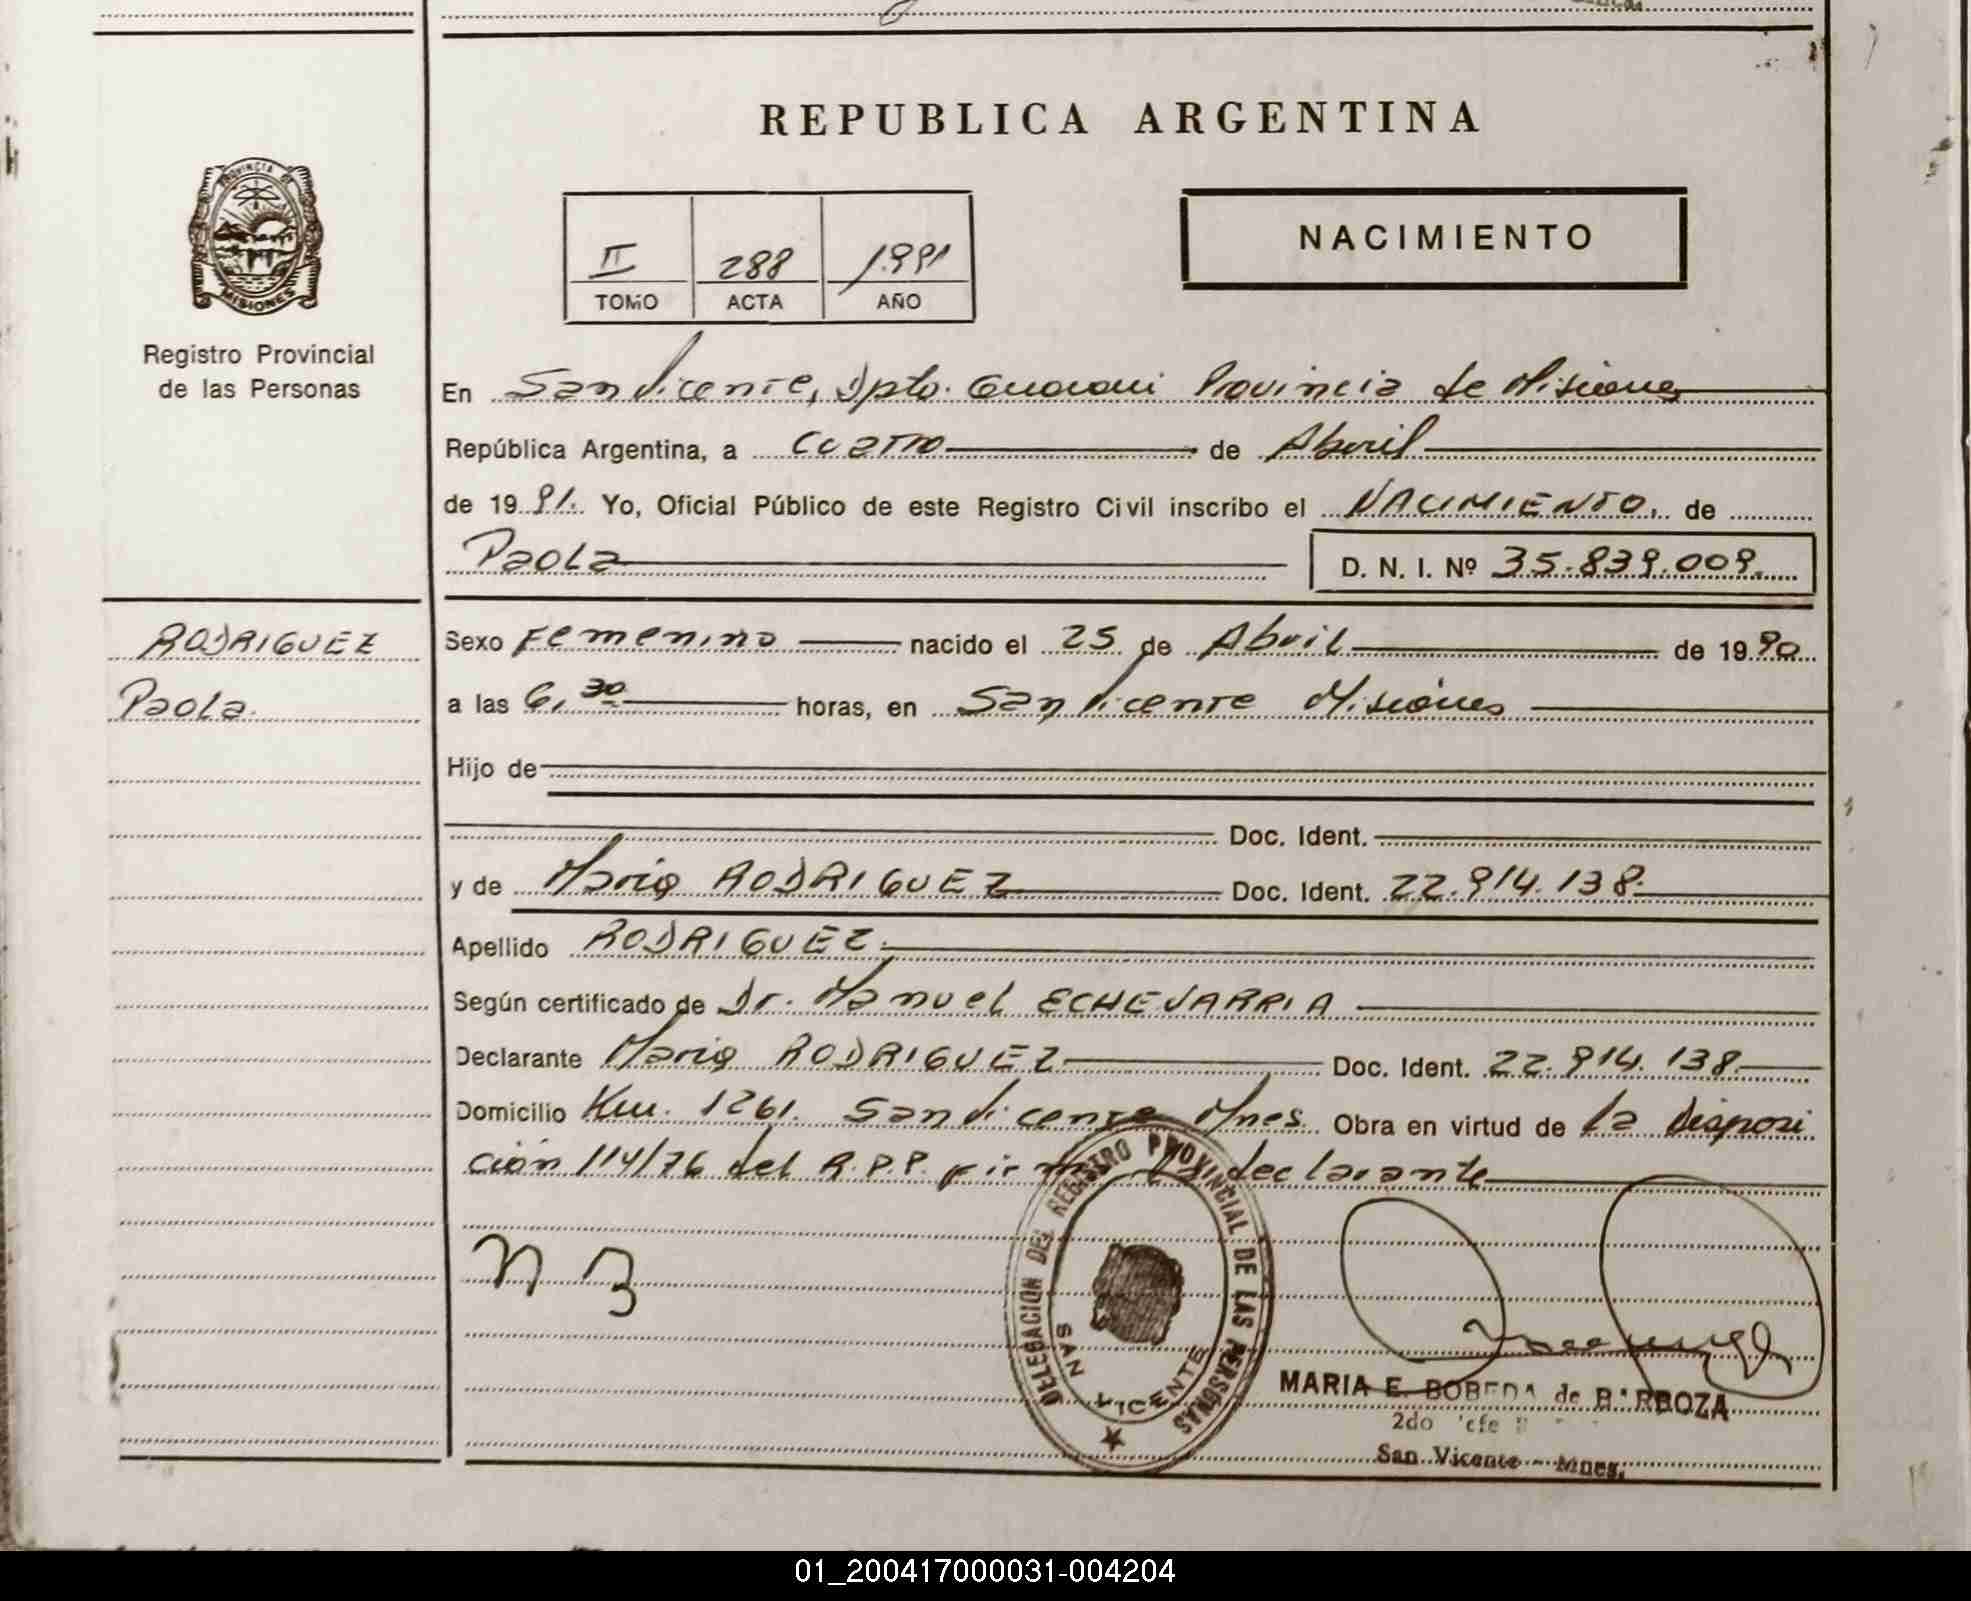 REPUBLICA ARGENTINA
PROVINCIA DE
MISIONES
Registro Provincial
de las Personas
II 288 1991
TOMO ACTA AÑO
NACIMIENTO
En San Vicente, Dpto. Guarani Provincia de Misiones
República Argentina, a cuatro de Abril
de 1991. Yo, Oficial Público de este Registro Civil inscribo el NACIMIENTO, de
Paola D. N. I. Nº 35.839.009.
RODRIGUEZ
Paola.
Sexo Femenino nacido el 25 de Abril de 1990
a las 6,30 horas, en San Vicente Misiones
Hijo de
Doc. Ident.
y de Maria RODRIGUEZ Doc. Ident. 22.914.138.
Apellido RODRIGUEZ.
Según certificado de Dr. Manuel ECHEVARRIA
Declarante Maria RODRIGUEZ Doc. Ident. 22.914.138.
Domicilio Km. 1261. San Vicente Mnes. Obra en virtud de la Disposi
ción 114/76 del R.P.P. firma la declarante
DELEGACION DEL REGISTRO PROVINCIAL DE LAS PERSONAS
SAN VICENTE
MARIA E. BOBEDA de BARBOZA
2do
San Vicente - Mnes.
01_200417000031-004204